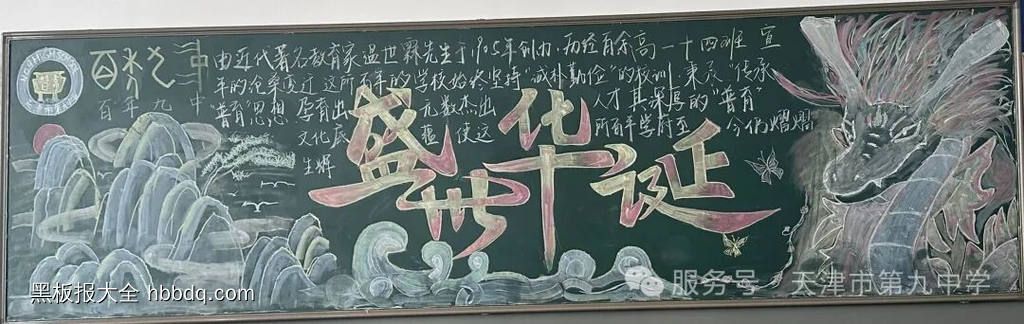 百年九中
由近代著名教育家温世霖先生于1905年创办,历经百余 高一十四班 宣
年的沧桑变迁 这所百年的学校始终坚持“诚朴勤俭”的校训,秉承“传承
百年九中 “普育”思想 孕育出 无数杰出 人才 其深厚的“普育”
文化底蕴 使这 所百年学府至今仍熠熠
生辉
盛世华诞
服务号 天津市第九中学
黑板报大全 hbbdq.com